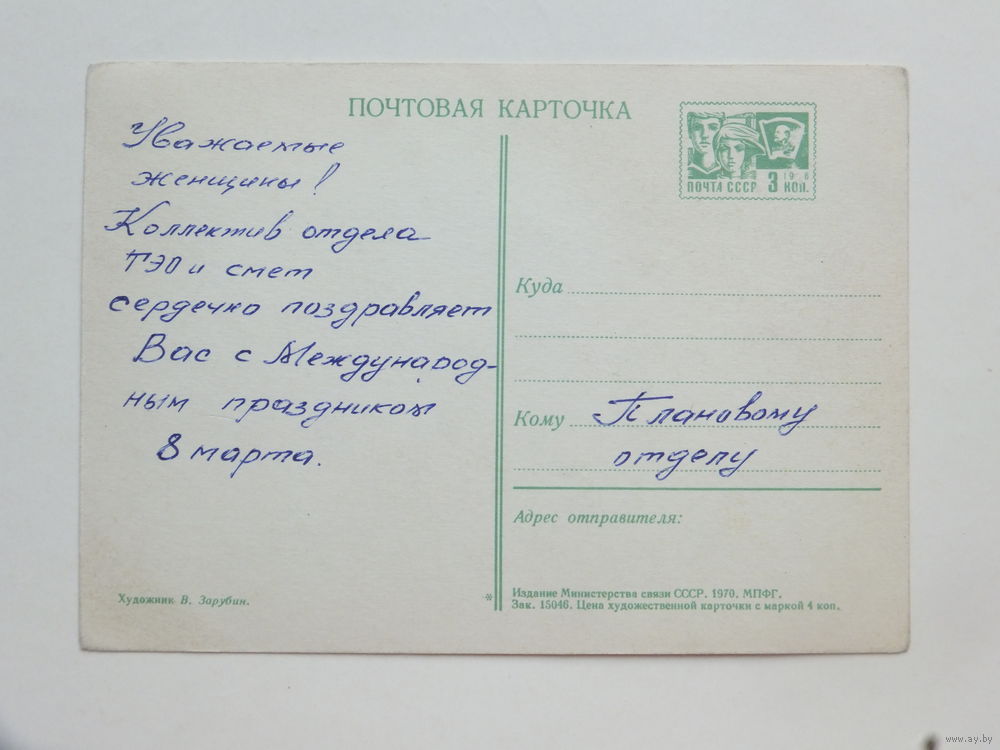 ПОЧТОВАЯ КАРТОЧКА
Уважаемые
женщины!
Коллектив отдела
ТЭО и смет
сердечно поздравляет
Вас с Международ-
ным праздником
8 марта.
Художник В. Зарубин.
ПОЧТА СССР 3 КОП.
Куда
Кому Плановому
отделу
Адрес отправителя:
* Издание Министерства связи СССР. 1970. МПФГ.
Зак. 15046. Цена художественной карточки с маркой 4 коп.
www.ay.by